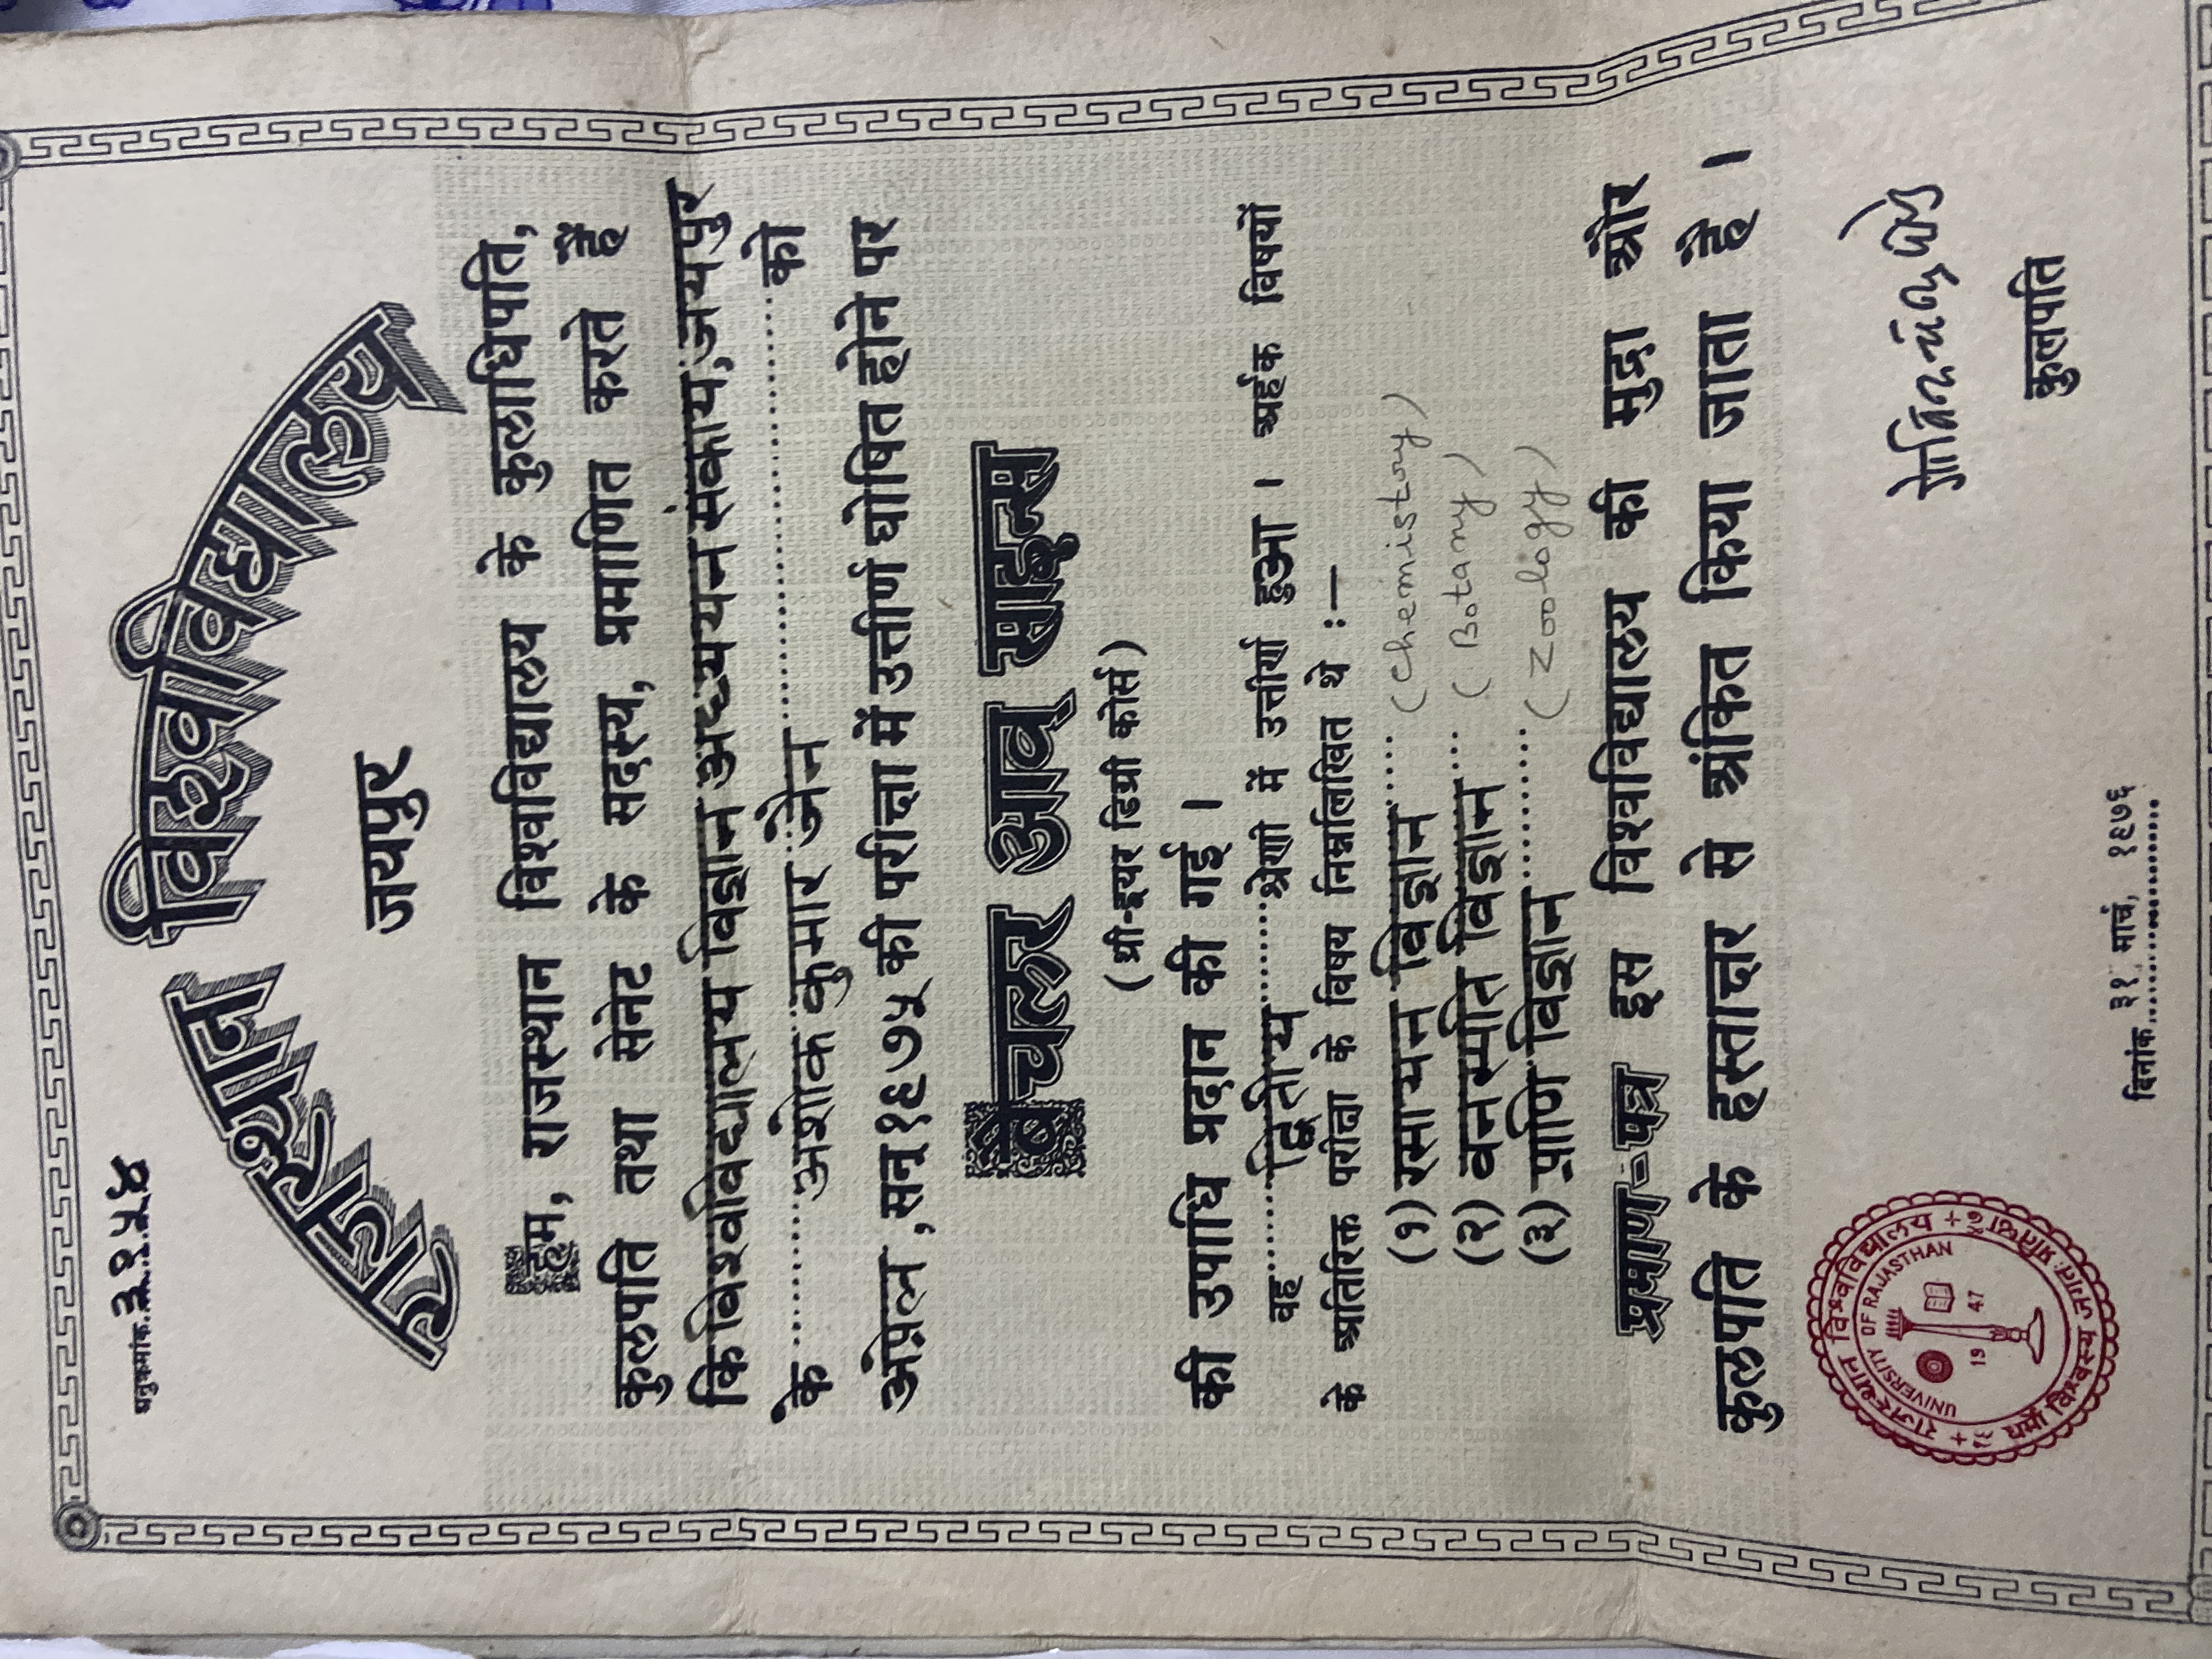 अनुक्रमांक ३१५४
राजस्थान विश्वविद्यालय
जयपुर
हम, राजस्थान विश्वविद्यालय के कुलाधिपति,
कुलपति तथा सेनेट के सदस्य, प्रमाणित करते हैं
कि विश्वविद्यालय विज्ञान अध्ययन संकाय, जयपुर
के..........अशोक कुमार जैन..........को
अप्रेल, सन् १९७५ की परीक्षा में उत्तीर्ण घोषित होने पर
बेचलर आव् साइन्स
(थ्री-इयर डिग्री कोर्स)
की उपाधि प्रदान की गई ।
वह.........द्वितीय.........श्रेणी में उत्तीर्ण हुआ । अर्हक विषयों
के अतिरिक्त परीक्षा के विषय निम्नलिखित थे :—
(१) रसायन विज्ञान..... (Chemistry)
(२) वनस्पति विज्ञान.... (Botany)
(३) प्राणि विज्ञान.......... (Zoology)
प्रमाण-पत्र इस विश्वविद्यालय की मुद्रा और
कुलपति के हस्ताक्षर से अंकित किया जाता है ।
कुलपति
राजस्थान विश्वविद्यालय
धर्मो विश्वस्य जगतः प्रतिष्ठा
UNIVERSITY OF RAJASTHAN
19 47
दिनांक ३१ मार्च, १९७६